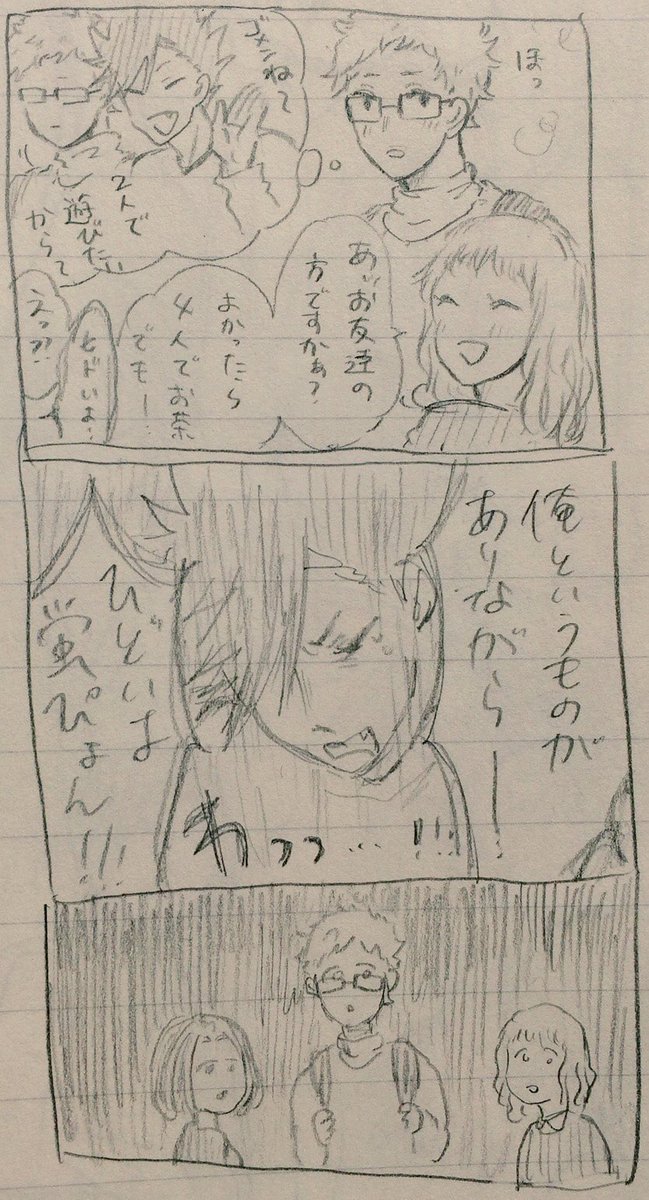 ほっ
ゴメンねて
2人で
遊びたい
からって
あ、お友達の
方ですかぁ?
よかったら
4人でお茶
でもー…
ヒドいよ…
えっ?!
俺というものが
ありながらー
わっっ…!!!
ひどいよ
蛍ぴょん!!!